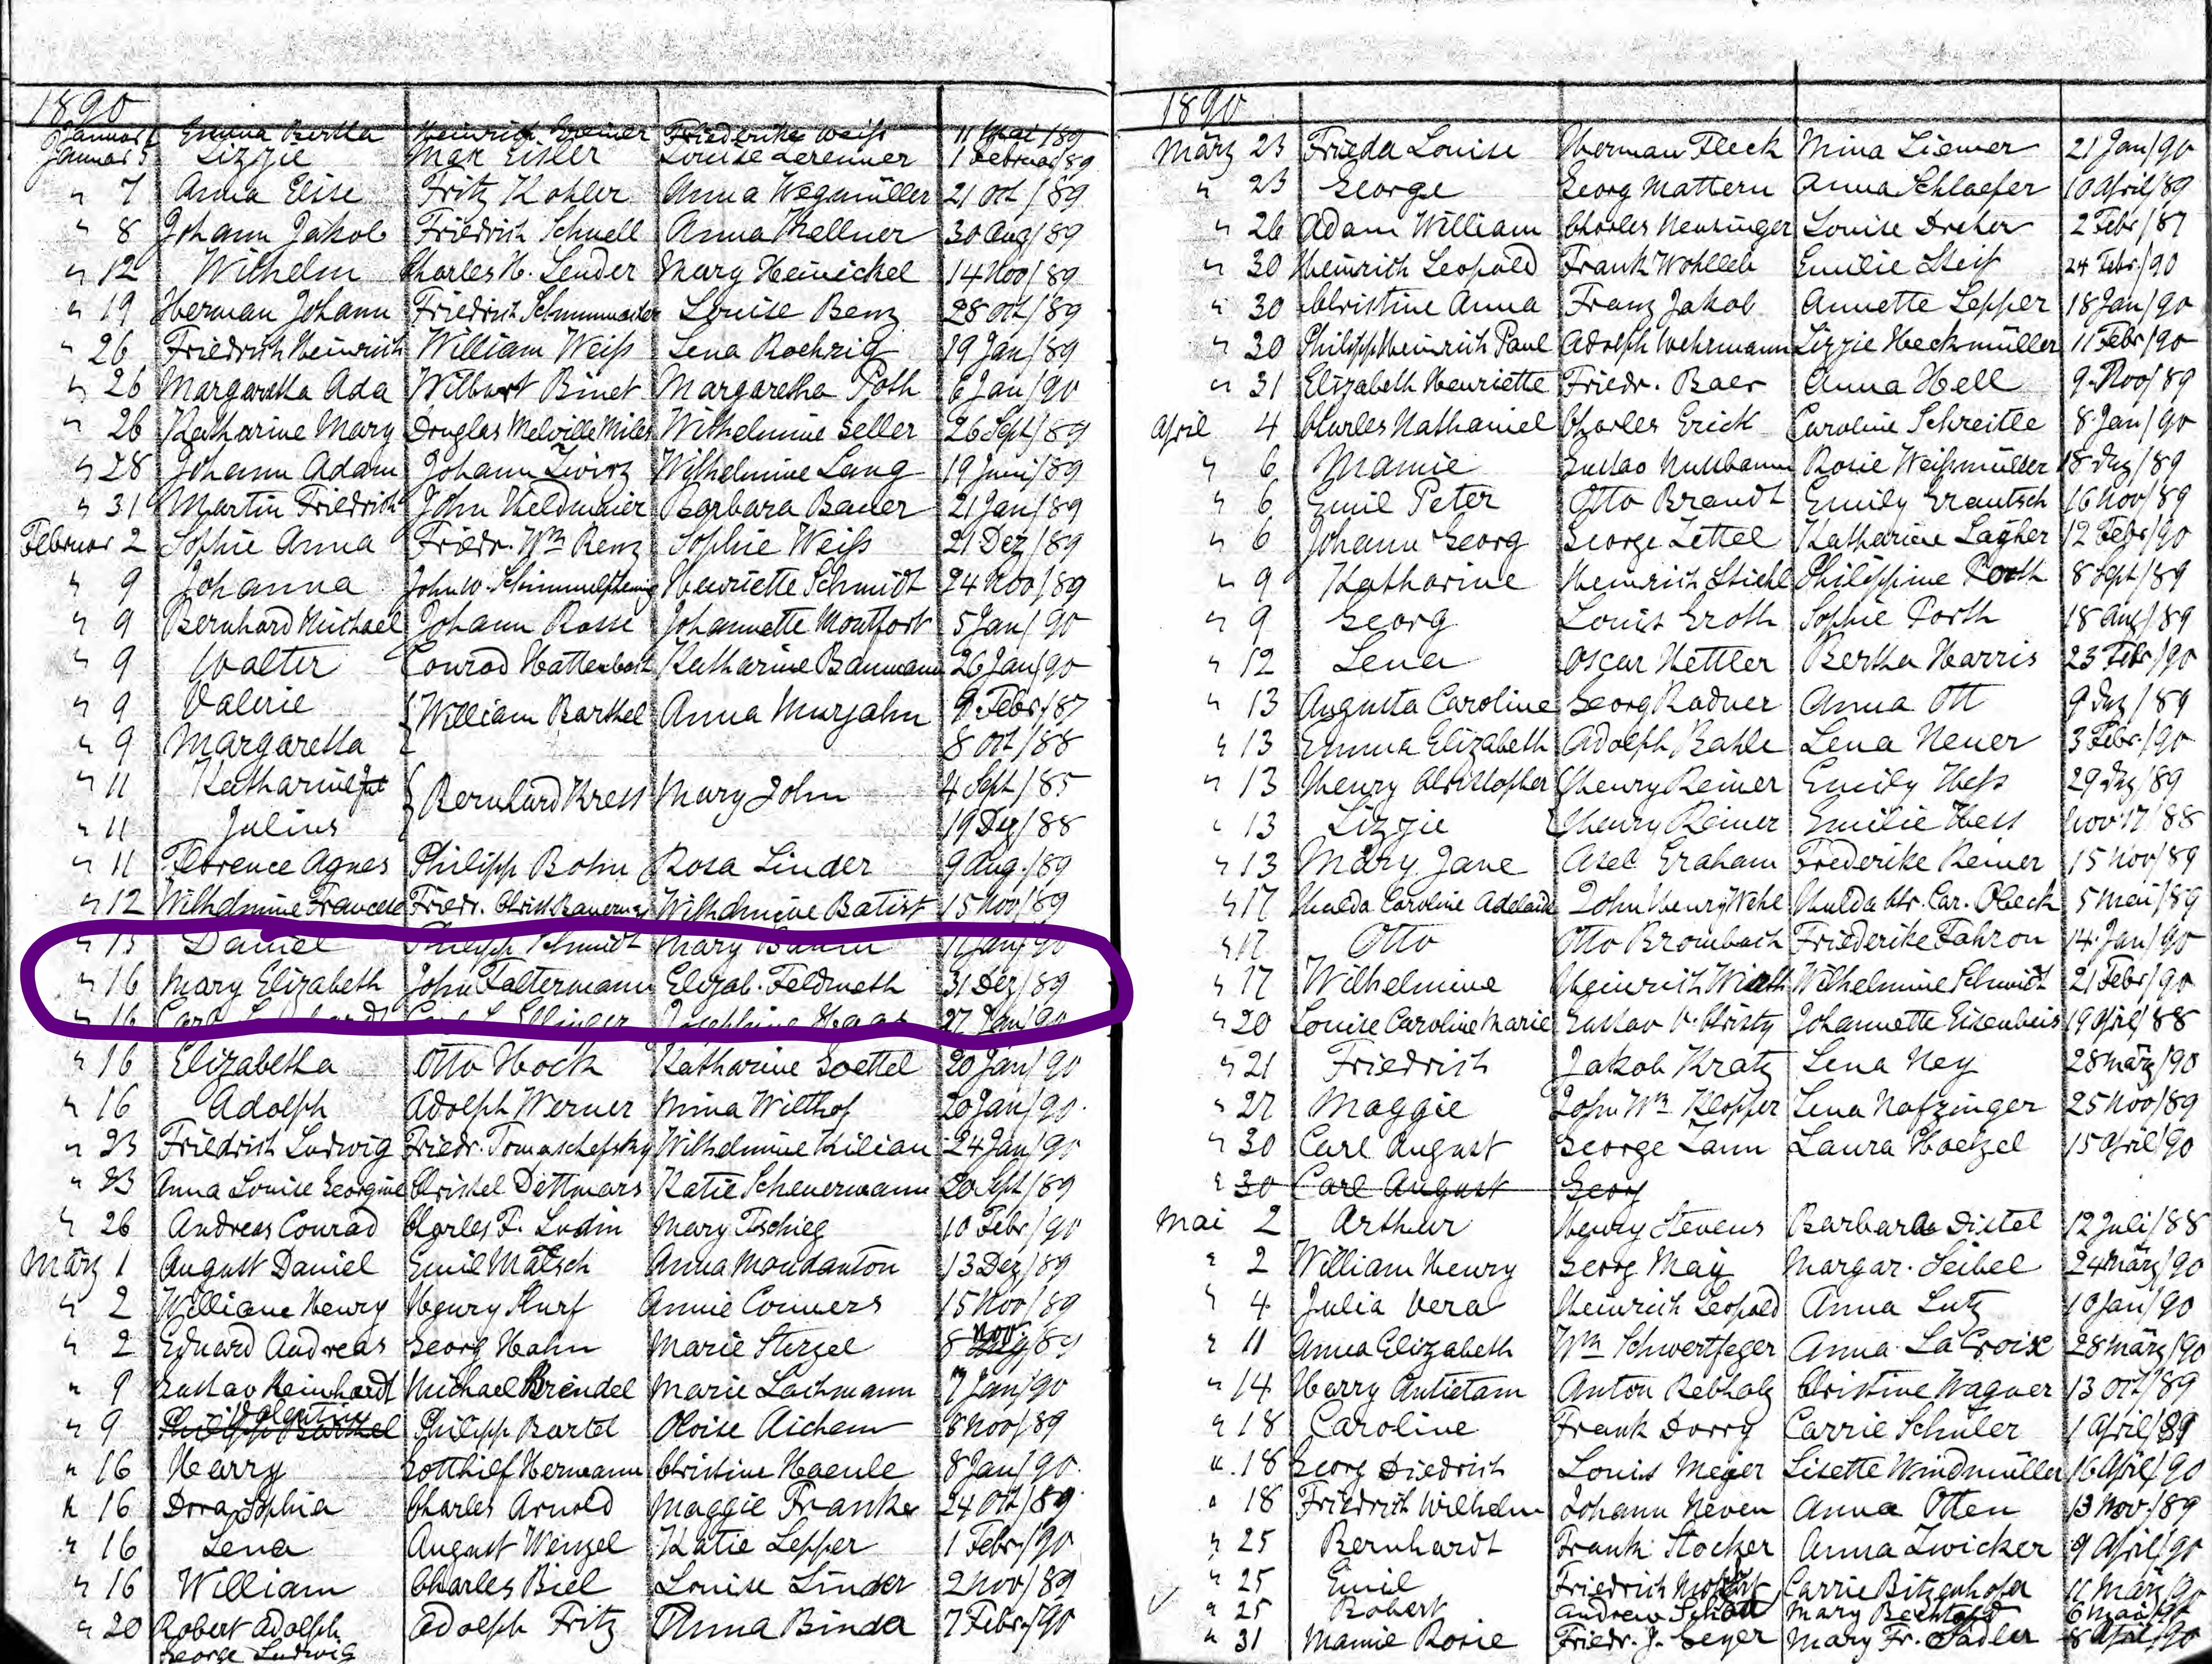 1890
Januar Emma Bertha Heinrich Greiner Friederike Weiß 11 Mai/89
Januar 5 Lizzie Max Eisler Louise 1 Februar/89
" 7 Anna Elise Fritz Kohler Anna Wegmüller 21 Oct/89
" 8 Johann Jakob Friedrich Schnell Anna Kellner 30 Aug/89
" 12 Wilhelm Charles H. Lender Mary Heinickel 14 Nov/89
" 19 Herman Johann Friedrich Louise Benz 28 Oct/89
" 26 Friedrich Heinrich William Weiß Lena Roehrig 19 Jan/89
" 26 Margaretha Ada Wilbert Binet Margaretha Poth 6 Jan/90
" 26 Katharine Mary Douglas Melville Miles Wilhelmine Seller 26 Sept/89
" 28 Johann Adam Johann Zwirz Wilhelmine Lang 19 Juni/89
" 31 Martin Friedrich John Heldmaier Barbara Bauer 21 Jan/89
Februar 2 Sophie Anna Friedr. Wm Renz Sophie Weiß 21 Dez/89
" 9 Johanna John W. Henriette Schmidt 24 Nov/89
" 9 Bernhard Michael Johann Rosse Johannette Montfort 5 Jan/90
" 9 Walter Conrad Katharine Baumann 26 Jan/90
" 9 Valerie { William Barthel Anna Murjahn 9 Febr/87
" 9 Margaretha 8 Oct/88
" 11 Katharine { Bernhard Kress Mary John 4 Sept/85
" 11 Julius 19 Dez/88
" 11 Florence Agnes Philipp Bohn Rosa Linder 9 Aug./89
" 12 Wilhelmine Friedr. Christ. Wilhelmine Batist 15 Nov/89
" 15 Daniel Philipp Schmidt Mary Baum 11 Jan/90
" 16 Mary Elizabeth John Faltermann Elizab. Feldmeth 31 Dez/89
" 16 Carl Ellinger Josephine Haas 27 Jan/90
" 16 Elizabetha Otto Hock Katharine Goettel 20 Jan/90
" 16 Adolph Adolph Werner Mina Wilthof 20 Jan/90.
" 23 Friedrich Ludwig Friedr. Tomaschefsky Wilhelmine Kilian 24 Jan/90
" 23 Anna Louise Georgine Christel Dettmars Katie Scheuermann 20 Sept/89
" 26 Andreas Conrad Charles F. Ludin Mary Tschieg 10 Febr/90
März 1 August Daniel Emil Mätsch Anna Mondanton 13 Dez/89
" 2 William Henry Henry Kurf Annie Conners 15 Nov/89
" 2 Eduard Andreas Georg Hahn Marie Sterzel 8 Nov/89
" 9 Gustav Reinhardt Michael Brendel Marie Lachmann 7 Jan/90
" 9 Valentin Philipp Bartel Philipp Bartel Aichem 8 Nov/89
" 16 Harry Gotthilf Hermann Christine Haenle 8 Jan/90.
" 16 Dora Sophia Charles Arnold Maggie Franke 24 Oct/89
" 16 Lena August Wenzel Katie Lepper 1 Febr/90
" 16 William Charles Biel Louise Linder 2 Nov/89
" 20 Robert Adolph Adolph Fritz Anna Binder 7 Febr/90
George Ludwig
1890
März 23 Frieda Louise Herman Fleck Mina Liemer 21 Jan/90
" 23 George Georg Mattern Anna Schlaefer 10 April/89
" 26 Adam William Charles Neusinger Louise Dreher 2 Febr/87
" 30 Heinrich Leopold Frank Wohlleb Emilie Steif 24 Febr/90
" 30 Christine Anna Franz Jakob Annette Lepper 18 Jan/90
" 30 Philipp Heinrich Paul Adolph Wehrmann Lizzie Heckmüller 11 Febr/90
" 31 Elizabeth Henriette Friedr. Baer Anna Hell 9 Nov/89
April 4 Charles Nathaniel Charles Erick Caroline Schreitle 8 Jan/90
" 6 Mamie Gustav Nussbaum Rosie Weißmüller 18 Dez/89
" 6 Emil Peter Otto Brandt Emily Grautsch 16 Nov/89
" 6 Johann Georg George Zettel Katharine Lagher 12 Febr/90
" 9 Katharine Heinrich Stiehl Philippine Porth 8 Sept/89
" 9 Georg Louis Groth Sophie Porth 18 Aug/89
" 12 Lena Oscar Hettler Bertha Harris 23 Febr/90
" 13 Augusta Caroline Georg Radner Anna Ott 9 Dez/89
" 13 Emma Elizabeth Adolph Bahle Lena Neuer 3 Febr/90
" 13 Henry Christopher Henry Reiner Emily Heß 29 Dez/89
" 13 Lizzie Henry Reiner Emilie Hess Nov 17/88
" 13 Mary Jane Asel Graham Frederike Reiner 15 Nov/89
" 17 Hulda Caroline Adelaide John Henry Wehe Hulda Chr. Car. Oleck 5 Mai/89
" 17 Otto Otto Brombach Friederike Fahron 14 Jan/90
" 17 Wilhelmine Heinrich Wirth Wilhelmine Schmidt 21 Febr/90
" 20 Louise Caroline Marie Gustav V. Christy Johannette Eisenbeis 19 April/88
" 21 Friedrich Jakob Kratz Lena Ney 28 März/90
" 27 Maggie John Wm Klopper Lena Nafzinger 25 Nov/89
" 30 Carl August George Zann Laura Hoelzel 15 April/90
" 30 Carl August Georg
Mai 2 Arthur Henry Stevens Barbara Distel 12 Juli/88
" 2 William Henry Georg May Margar. Seibel 24 März/90
" 4 Julia Vera Heinrich Leopold Anna Lutz 10 Jan/90
" 11 Anna Elizabeth Wm Schwertfeger Anna LaCroix 28 März/90
" 14 Harry Antietam Anton Rebholz Christine Wagner 13 Oct/89
" 18 Caroline Frank Dorry Carrie Schuler 1 April/89
" 18 Georg Diedrich Louis Meyer Lisette Windmüller 16 April/90
" 18 Friedrich Wilhelm Johann Neven Anna Otten 13 Nov/89
" 25 Bernhardt Frank Stocker Anna Zwicker 9 April/90
" 25 Emil Friedrich Carrie Bitzenhofer 11 März/90
" 25 Robert Andrew Schott Mary Bechtold 6 Mai/90
" 31 Mamie Rosie Friedr. J. Geyer Mary Fr. Sadler 8 April/90